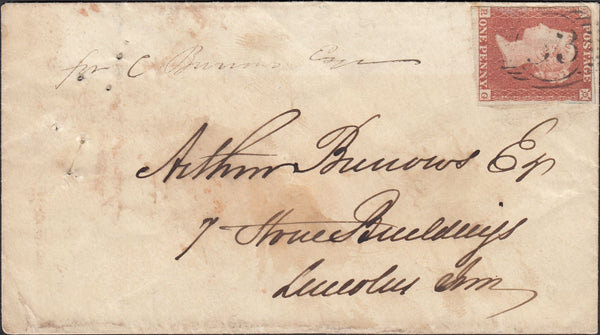 for C Burrows Esqr
Arthur Burrows Esq
7 Stone Buildings
Lincolns Inn
POSTAGE
ONE PENNY